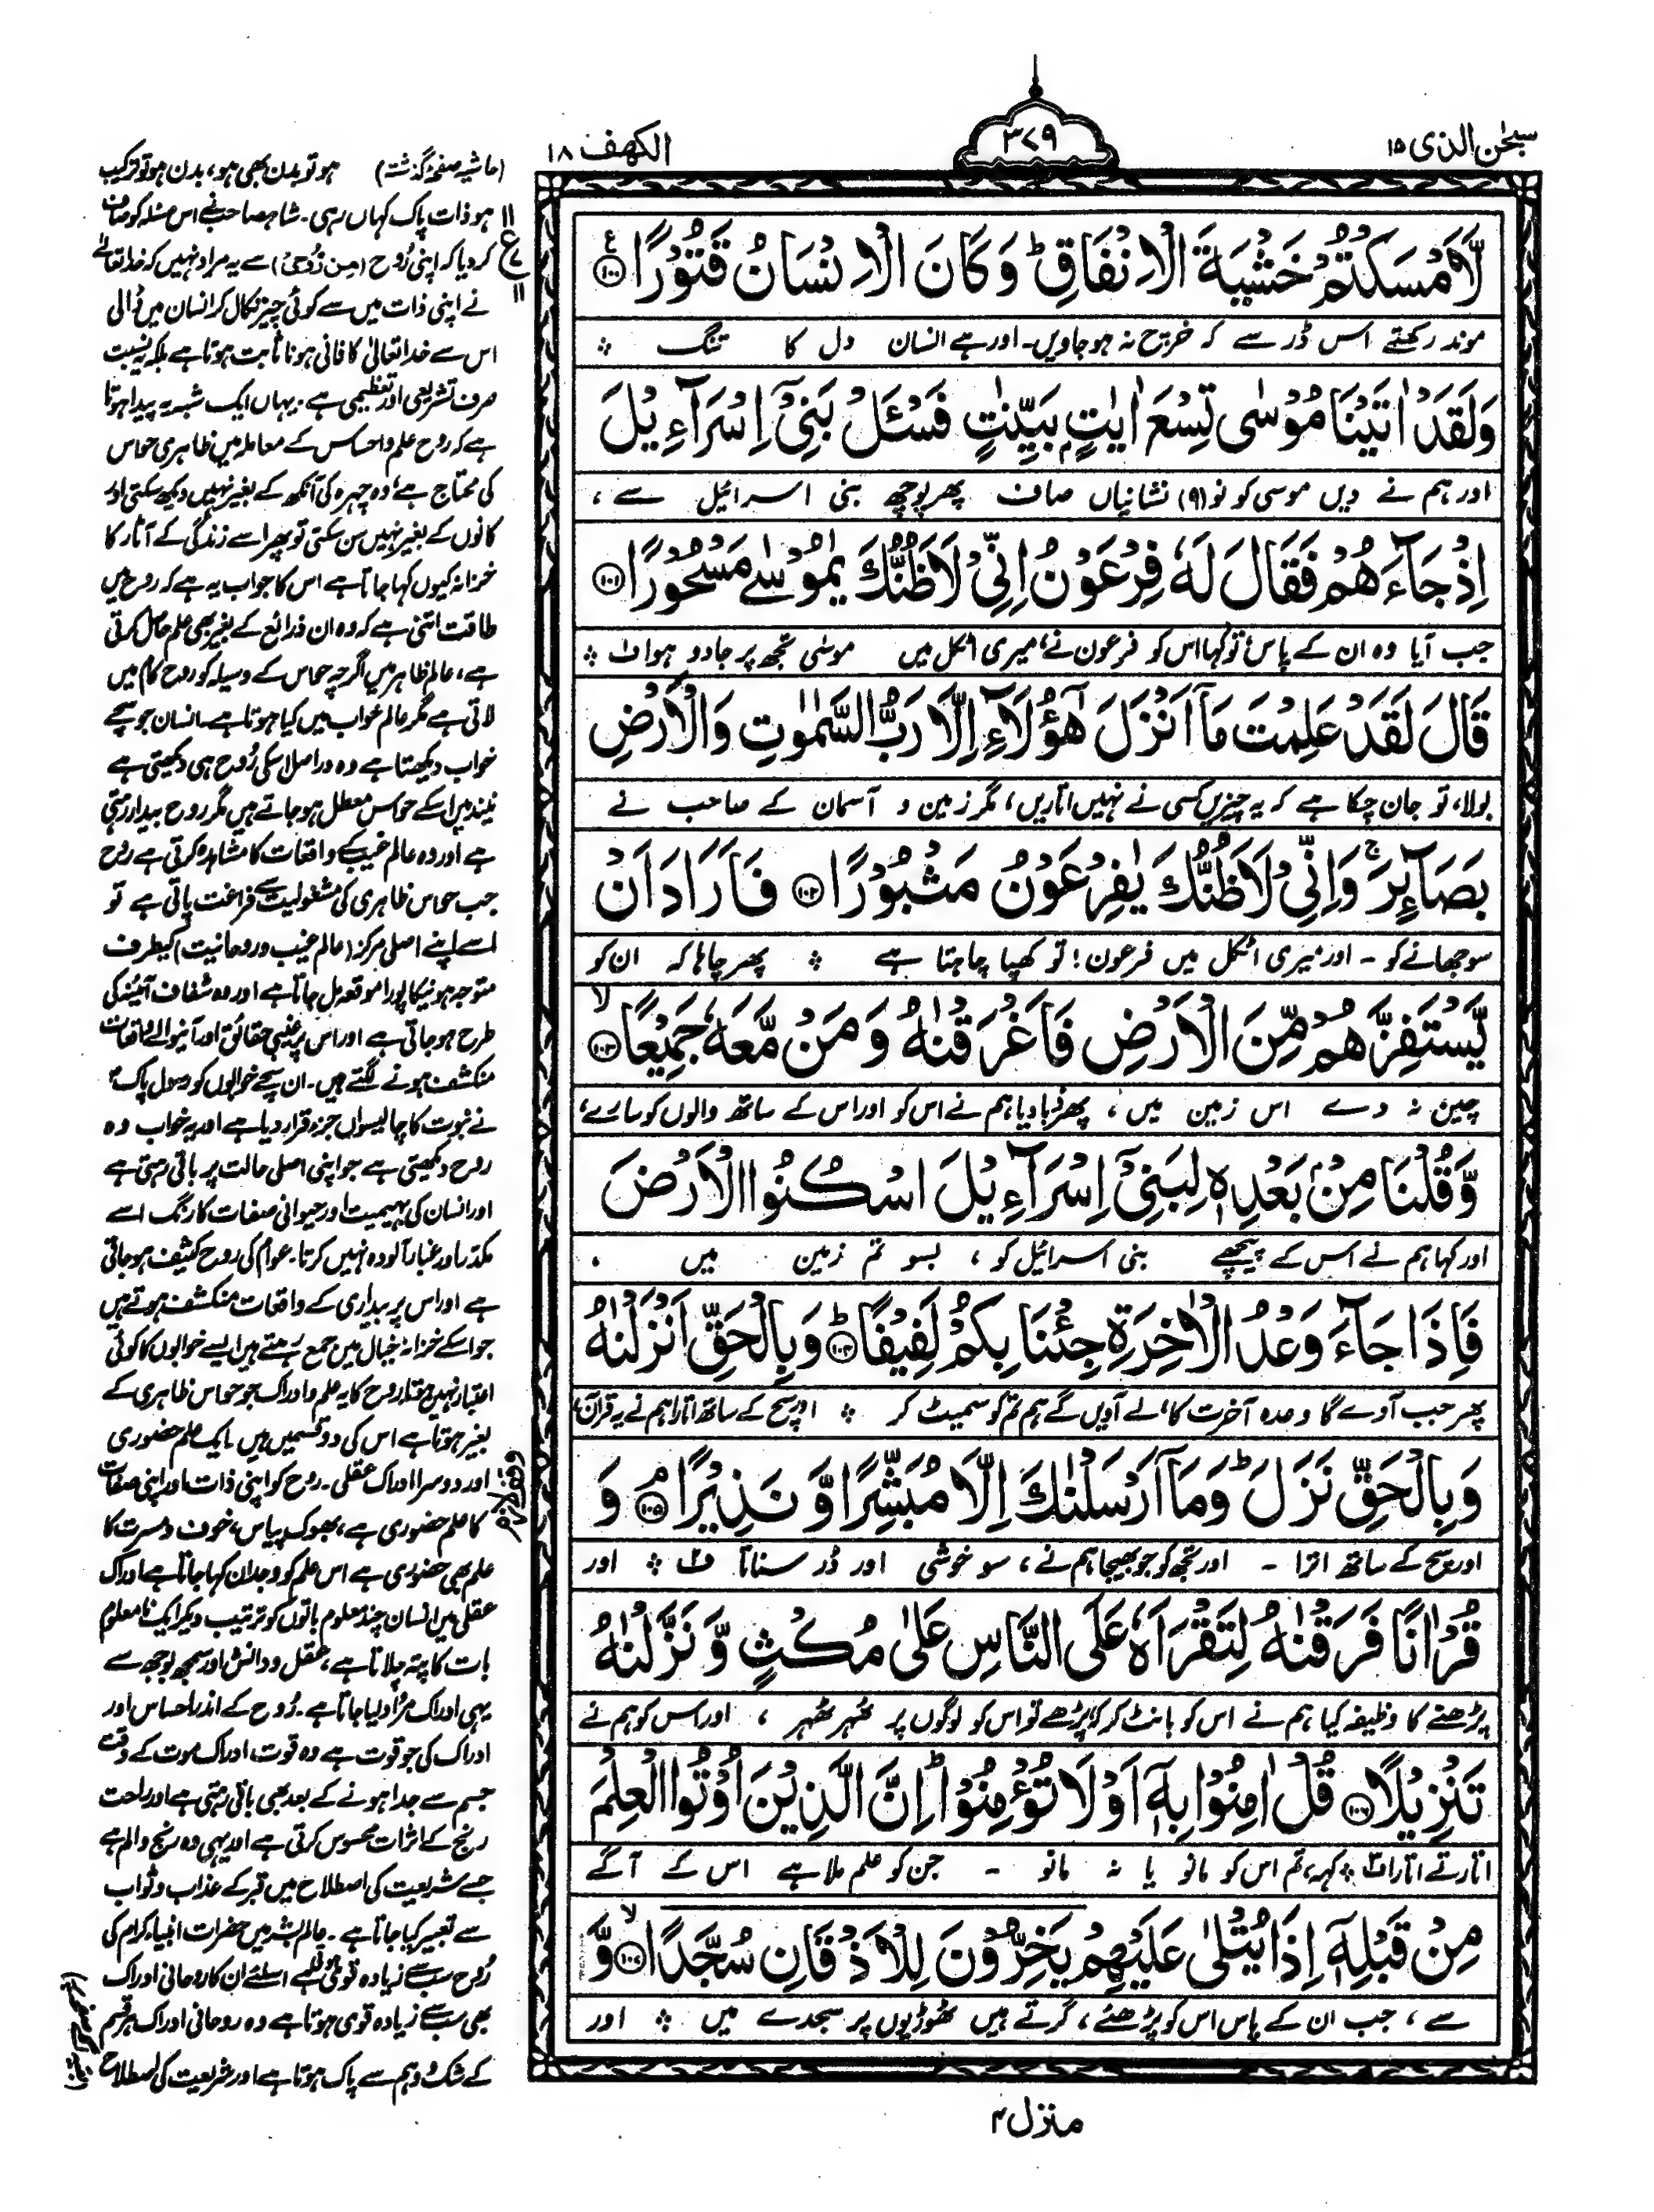 سبحٰن الذی ۱۵
۳۷۹
الکھف ۱۸
لَّاَمْسَكْتُمْ خَشْيَةَ الْاِنْفَاقِ ؕ وَكَانَ الْاِنْسَانُ قَتُوْرًا ۱۰۰ ع
موند رکھتے اس ڈر سے کہ خرچ نہ ہو جاویں۔ اور ہے انسان دل کا تنگ ❖
وَلَقَدْ اٰتَيْنَا مُوْسٰى تِسْعَ اٰيٰتٍۭ بَيِّنٰتٍ فَسْـَٔلْ بَنِیْۤ اِسْرَآءِيْلَ
اور ہم نے دیں موسی کو نو (۹) نشانیاں صاف پھر پوچھ بنی اسرائیل سے،
اِذْ جَآءَهُمْ فَقَالَ لَهٗ فِرْعَوْنُ اِنِّیْ لَاَظُنُّكَ يٰمُوْسٰى مَسْحُوْرًا ۱۰۱
جب آیا وہ ان کے پاس، تو کہا اس کو فرعون نے، میری اٹکل میں موسٰی تجھ پر جادو ہوا ف ❖
قَالَ لَقَدْ عَلِمْتَ مَاۤ اَنْزَلَ هٰۤؤُلَآءِ اِلَّا رَبُّ السَّمٰوٰتِ وَالْاَرْضِ
بولا، تو جان چکا ہے کہ یہ چیزیں کسی نے نہیں اتاریں، مگر زمین و آسمان کے صاحب نے
بَصَآئِرَ ۚ وَاِنِّیْ لَاَظُنُّكَ يٰفِرْعَوْنُ مَثْبُوْرًا ۱۰۲ فَاَرَادَ اَنْ
سوجھانے کو ۔ اور میری اٹکل میں فرعون! تو کھپا چاہتا ہے ❖ پھر چاہا کہ ان کو
يَّسْتَفِزَّهُمْ مِّنَ الْاَرْضِ فَاَغْرَقْنٰهُ وَمَنْ مَّعَهٗ جَمِيْعًا ۱۰۳ لا
چین نہ دے اس زمین میں، پھر ڈبا دیا ہم نے اس کو اور اس کے ساتھ والوں کو سارے،
وَّقُلْنَا مِنْۢ بَعْدِهٖ لِبَنِیْۤ اِسْرَآءِيْلَ اسْكُنُوا الْاَرْضَ
اور کہا ہم نے اس کے پیچھے بنی اسرائیل کو، بسو تم زمین میں
فَاِذَا جَآءَ وَعْدُ الْاٰخِرَةِ جِئْنَا بِكُمْ لَفِيْفًا ۱۰۴ ؕ وَبِالْحَقِّ اَنْزَلْنٰهُ
پھر جب آوے گا وعدہ آخرت کا، لے آویں گے ہم تم کو سمیٹ کر ❖ اور سچ کے ساتھ اتارا ہم نے یہ قرآن،
وَبِالْحَقِّ نَزَلَ ؕ وَمَاۤ اَرْسَلْنٰكَ اِلَّا مُبَشِّرًا وَّنَذِيْرًا ۱۰۵ م وَ
اور سچ کے ساتھ اترا ۔ اور تجھ کو جو بھیجا ہم نے، سو خوشی اور ڈر سناتا ف ❖ اور
قُرْاٰنًا فَرَقْنٰهُ لِتَقْرَاَهٗ عَلَى النَّاسِ عَلٰى مُكْثٍ وَّنَزَّلْنٰهُ
پڑھنے کا وظیفہ کیا ہم نے اس کو بانٹ کر کہ پڑھے تو اس کو لوگوں پر ٹھہر ٹھہر، اور اس کو ہم نے
تَنْزِيْلًا ۱۰۶ قُلْ اٰمِنُوْا بِهٖۤ اَوْ لَا تُؤْمِنُوْا ؕ اِنَّ الَّذِيْنَ اُوْتُوا الْعِلْمَ
اتارتے اتارا ف ❖ کہہ، تم اس کو مانو یا نہ مانو ۔ جن کو علم ملا ہے اس کے آگے
مِنْ قَبْلِهٖۤ اِذَا يُتْلٰى عَلَيْهِمْ يَخِرُّوْنَ لِلْاَذْقَانِ سُجَّدًا ۱۰۷ لا وَّ
سے، جب ان کے پاس اس کو پڑھئے، گرتے ہیں ٹھوڑیوں پر سجدے میں ❖ اور
منزل ۴
(حاشیہ صفحہ گذشتہ) ہو تو بدن بھی ہو، بدن ہو تو ترکیب
ہو ذات پاک کہاں رہی۔ شاہ صاحب نے اس مسئلہ کو صاف
کر دیا کہ اپنی رُوح (من رُوحی) سے یہ مراد نہیں کہ خدا تعالےٰ
نے اپنی ذات میں سے کوئی چیز نکال کر انسان میں ڈالی
اس سے خدا تعالیٰ کا فانی ہونا ثابت ہوتا ہے بلکہ یہ نسبت
صرف تشریعی اور تعظیمی ہے۔ یہاں ایک شبہ یہ پیدا ہوتا
ہے کہ روح علم و احساس کے معاملہ میں ظاہری حواس
کی محتاج ہے، وہ چہرہ کی آنکھ کے بغیر نہیں دیکھ سکتی اور
کانوں کے بغیر نہیں سن سکتی تو پھر اسے زندگی کے آثار کا
خزانہ کیوں کہا جاتا ہے اس کا جواب یہ ہے کہ روح میں
طاقت اتنی ہے کہ وہ ان ذرائع کے بغیر بھی علم حاصل کرتی
ہے، عالم ظاہر میں اگرچہ حواس کے وسیلہ کو روح کام میں
لاتی ہے مگر عالم خواب میں کیا ہوتا ہے۔ انسان جو سچے
خواب دیکھتا ہے وہ دراصل اسکی رُوح ہی دیکھتی ہے
نیند میں اسکے حواس معطل ہو جاتے ہیں مگر روح بیدار رہتی
ہے اور وہ عالم غیب کے واقعات کا مشاہدہ کرتی ہے روح
جب حواس ظاہری کی مشغولیت سے فراغت پاتی ہے تو
اسے اپنے اصلی مرکز (عالم غیب و روحانیت) کیطرف
متوجہ ہونیکا پورا موقعہ مل جاتا ہے اور وہ شفاف آئینہ کی
طرح ہو جاتی ہے اور اس پر غیبی حقائق اور آنیوالے واقعات
منکشف ہونے لگتے ہیں۔ ان سچے خوابوں کو رسول پاکؐ
نے نبوت کا چالیسواں جزء قرار دیا ہے اور یہ خواب وہ
روح دیکھتی ہے جو اپنی اصلی حالت پر باقی رہتی ہے
اور انسان کی بہیمیت اور حیوانی صفات کا رنگ اسے
مکدّر اور غبار آلودہ نہیں کرتا۔ عوام کی روح کثیف ہو جاتی
ہے اور اس پر بیداری کے واقعات منکشف ہوتے ہیں
جو اسکے خزانۂ خیال میں جمع رہتے ہیں ایسے خوابوں کا کوئی
اعتبار نہیں ہوتا۔ روح کا یہ علم و ادراک جو حواس ظاہری کے
بغیر ہوتا ہے اس کی دو قسمیں ہیں ایک علم حضوری
اور دوسرا ادراک عقلی۔ روح کو اپنی ذات اور اپنی صفات
کا علم حضوری ہے، بھوک پیاس، خوف و مسرت کا
علم بھی حضوری ہے اس علم کو وجدان کہا جاتا ہے ادراک
عقلی میں انسان چند معلوم باتوں کو ترتیب دیکر ایک نامعلوم
بات کا پتہ چلاتا ہے، عقل و دانش اور سمجھ بوجھ سے
یہی ادراک مراد لیا جاتا ہے۔ رُوح کے اندر احساس اور
ادراک کی جو قوت ہے وہ قوت ادراک موت کے وقت
جسم سے جدا ہونے کے بعد بھی باقی رہتی ہے اور راحت
رنج کے اثرات محسوس کرتی ہے اور یہی وہ رنج و الم ہے
جسے شریعت کی اصطلاح میں قبر کے عذاب و ثواب
سے تعبیر کیا جاتا ہے۔ عالم بشر میں حضرات انبیاء کرام کی
رُوح سب سے زیادہ قوی ہوتی ہے اسلئے ان کا روحانی ادراک
بھی سب سے زیادہ قوی ہوتا ہے وہ روحانی ادراک ہر قسم
کے شک و وہم سے پاک ہوتا ہے اور شریعت کی اصطلاح